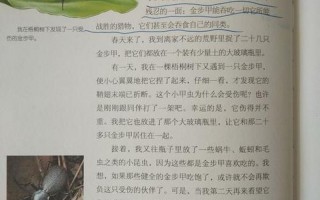 残忍的一面：金步甲能吞吃一切它所能
战胜的猎物，它们甚至会吞食自己的同类。
我在梧桐树下发现了一只受
伤的金步甲。
春天来了，我到离家不远的荒野里捉了二十几只
金步甲，把它们都放在一个装有少量土的大玻璃瓶里。
有一天，我在一棵梧桐树下又遇到一只金步甲，
便小心翼翼地把它捏了起来，仔细一看，才发觉它的
鞘翅末端已折断。这个小甲虫为什么会受伤呢？也许
是刚刚跟同伴打了一架吧。幸运的是，它伤得并不
重。我把它也放进了那个大玻璃瓶里，让它和那二十
多只金步甲居住在一起。
接着，我又往瓶子里放了一些蜗牛、蚯蚓和毛
虫之类的小昆虫，因为这些都是金步甲喜欢吃的。我
想，如果那些健全的金步甲吃饱了，或许就不会再欺
负这只受伤的伙伴了。可是，当我第二天再来看望它